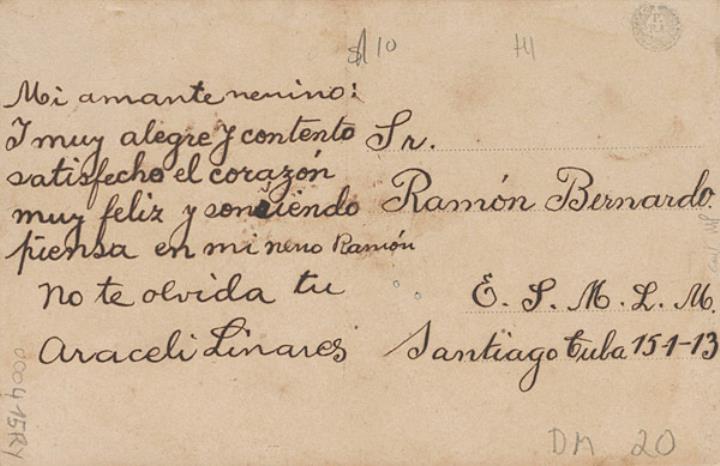 $10
Mi amante nenino:
Y muy alegre y contento
satisfecho el corazón
muy feliz y sonriendo
piensa en mi neno Ramón
No te olvida tu
Araceli Linares
Sr.
Ramón Bernardo.
E. S. M. L. M.
Santiago Cuba 15-1-13
000415RY
DM 20